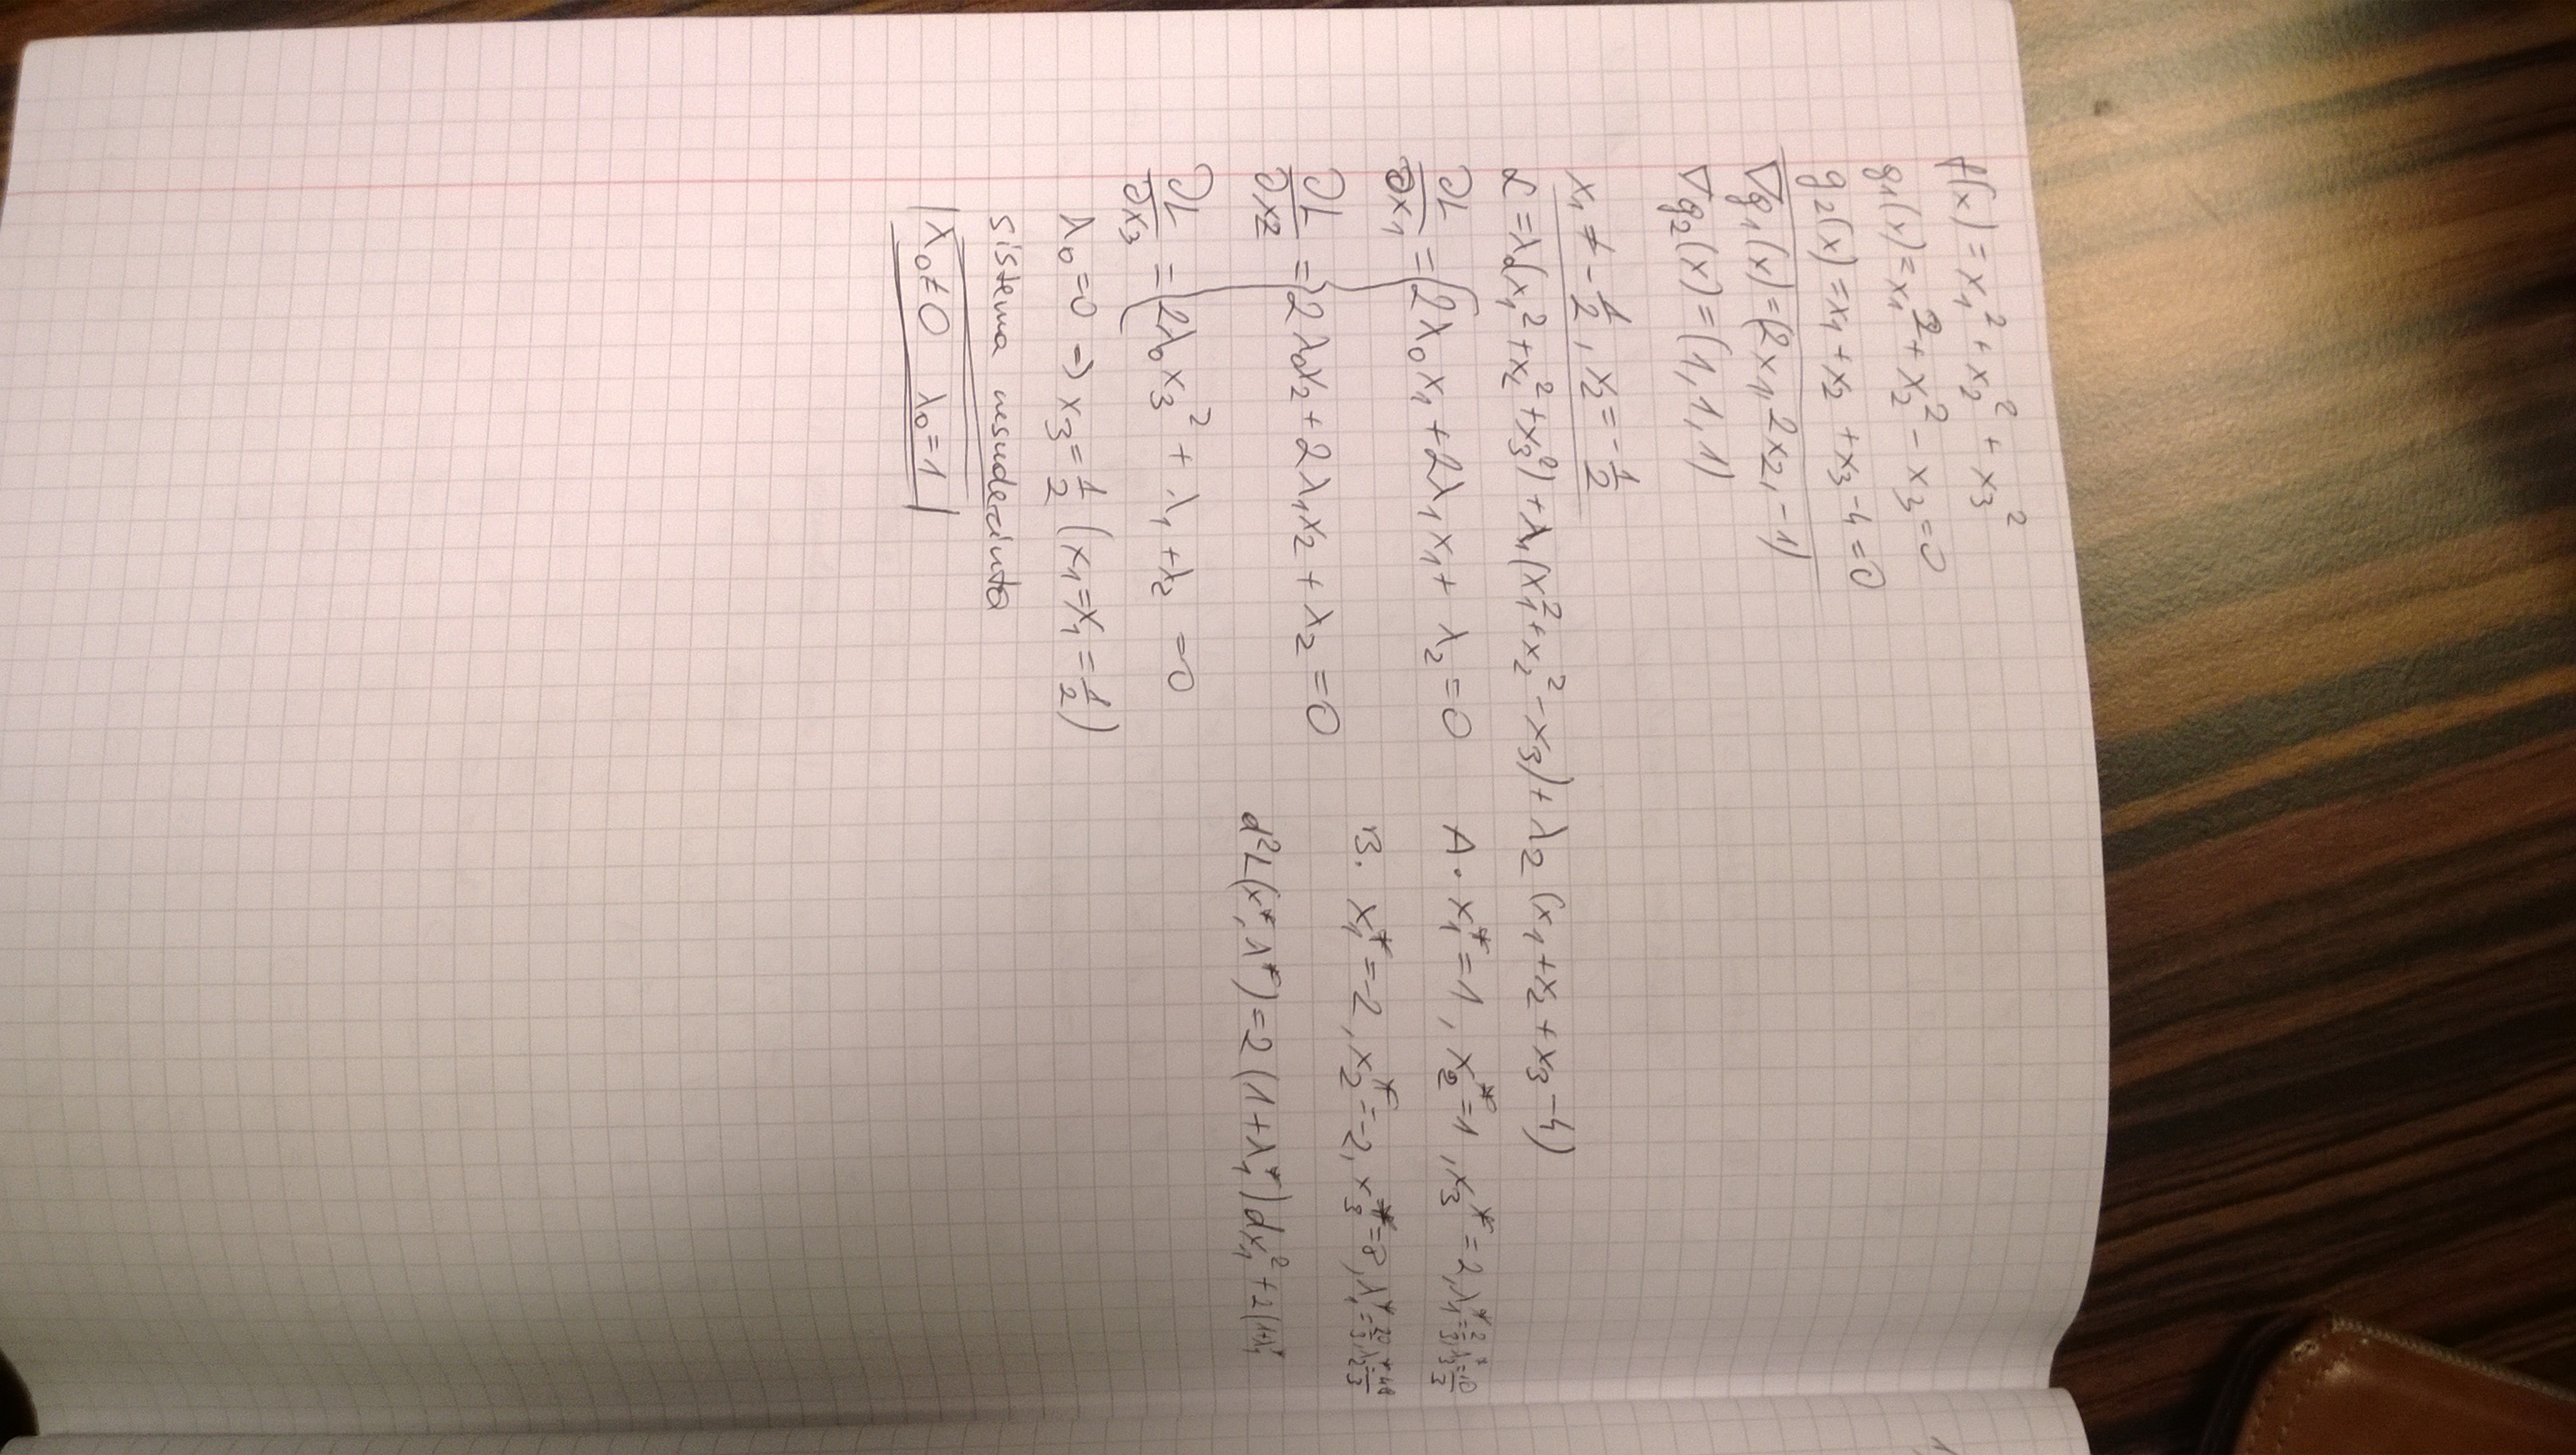 f(x) = x₁² + x₂² + x₃²
g₁(x) = x₁² + x₂² − x₃ = 0
g₂(x) = x₁ + x₂ + x₃ − 4 = 0
∇g₁(x) = (2x₁, 2x₂, −1)
∇g₂(x) = (1, 1, 1)
x₁ ≠ −1/2, x₂ = −1/2
L = λ₀(x₁² + x₂² + x₃²) + λ₁(x₁² + x₂² − x₃) + λ₂(x₁ + x₂ + x₃ − 4)
∂L/∂x₁ = { 2λ₀x₁ + 2λ₁x₁ + λ₂ = 0
∂L/∂x₂ = { 2λ₀x₂ + 2λ₁x₂ + λ₂ = 0
∂L/∂x₃ = { 2λ₀x₃² + λ₁ + λ₂ = 0
λ₀ = 0 ⇒ x₃ = 1/2 (x₁ = x₁ = 1/2)
sistema nesuderinta
λ₀ ≠ 0 λ₀ = 1
A. x₁* = 1, x₂* = 1, x₃* = 2, λ₁* = 2/3, λ₃* = 10/3
B. x₁* = −2, x₂* = −2, x₃* = 8, λ₁* = 20/3, λ₂* = 48/3
d²L(x*, λ*) = 2(1 + λ₁*)dx₁² + 2(1+λ₁*